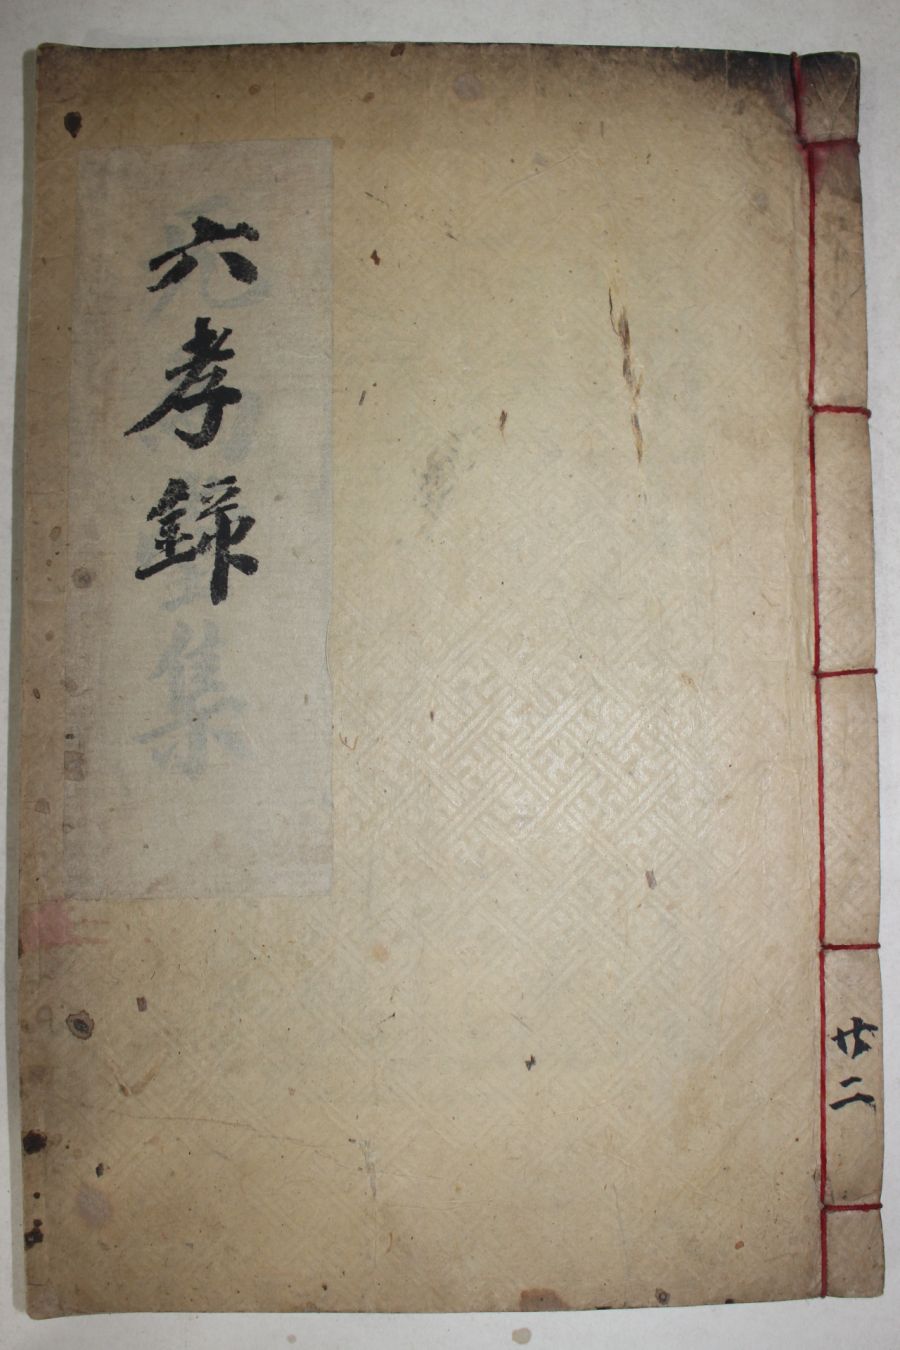 六孝錄
集
廿二